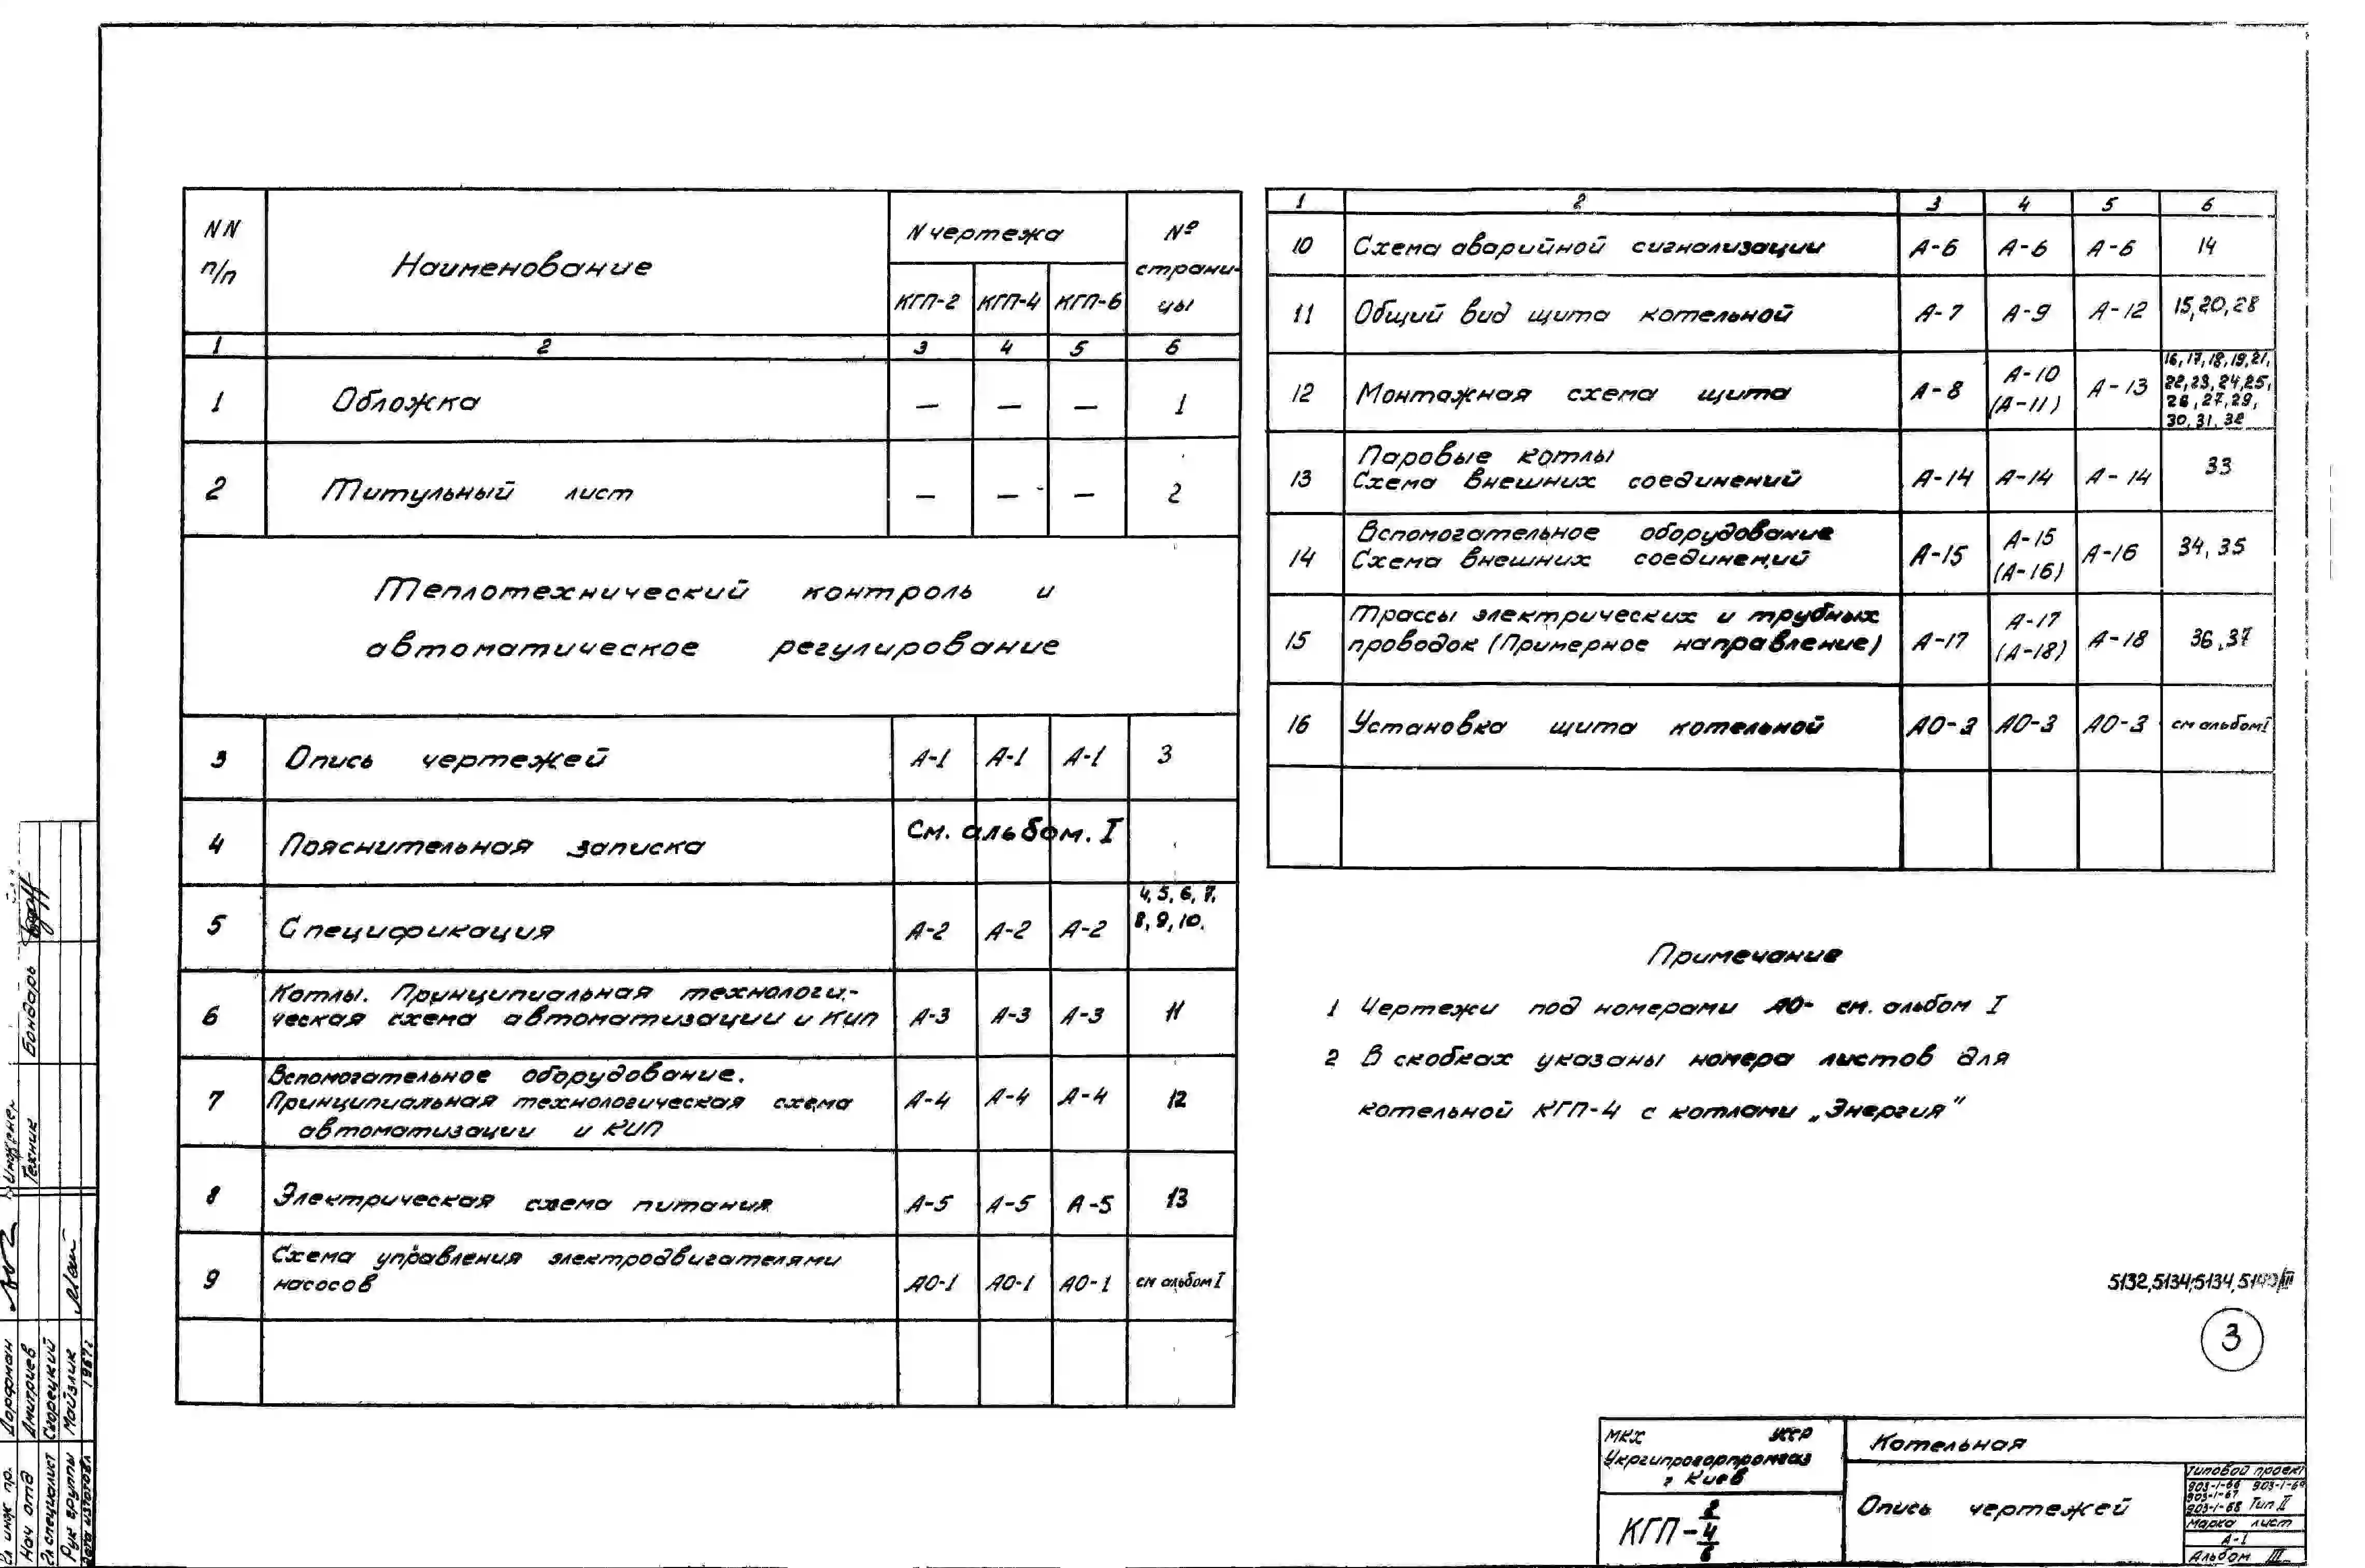 NN п/п Наименование N чертежа № страницы
КГП-2 КГП-4 КГП-6
1 2 3 4 5 6
1 Обложка — — — 1
2 Титульный лист — — — 2
Теплотехнический контроль и
автоматическое регулирование
3 Опись чертежей А-1 А-1 А-1 3
4 Пояснительная записка См. альбом. I
5 Спецификация А-2 А-2 А-2 4, 5, 6, 7,
8, 9, 10.
6 Котлы. Принципиальная технологи-
ческая схема автоматизации и КИП А-3 А-3 А-3 11
7 Вспомогательное оборудование.
Принципиальная технологическая схема А-4 А-4 А-4 12
автоматизации и КИП
8 Электрическая схема питания А-5 А-5 А-5 13
9 Схема управления электродвигателями
насосов АО-1 АО-1 АО-1 см альбом I
1 2 3 4 5 6
10 Схема аварийной сигнализации А-6 А-6 А-6 14
11 Общий вид щита котельной А-7 А-9 А-12 15,20,28
12 Монтажная схема щита А-8 А-10 (А-11) А-13 16, 17, 18, 19, 21,
22, 23, 24, 25,
26, 27, 29,
30, 31, 32
13 Паровые котлы
Схема внешних соединений А-14 А-14 А-14 33
14 Вспомогательное оборудование
Схема внешних соединений А-15 А-15 (А-16) А-16 34, 35
15 Трассы электрических и трубных
проводок (Примерное направление) А-17 А-17 (А-18) А-18 36,37
16 Установка щита котельной АО-3 АО-3 АО-3 см альбом I
Примечание
1 Чертежи под номерами АО- см. альбом I
2 В скобках указаны номера листов для
котельной КГП-4 с котлами „Энергия"
5132,5134,5134,5140/III
3
МКХ УССР
Укргипрогорпромгаз
г Киев
КГП-2/4/6
Котельная
Опись чертежей
Типовой проект
903-1-66 903-1-69
903-1-67
903-1-68 Тип II
Марка лист
А-1
Альбом III
Гл инж пр. Дорфман
Нач отд Дмитриев
Гл специалист Скорецкий
Рук группы Майзлик
Дата изготовл 1967г
Инженер
Техник Бондарь